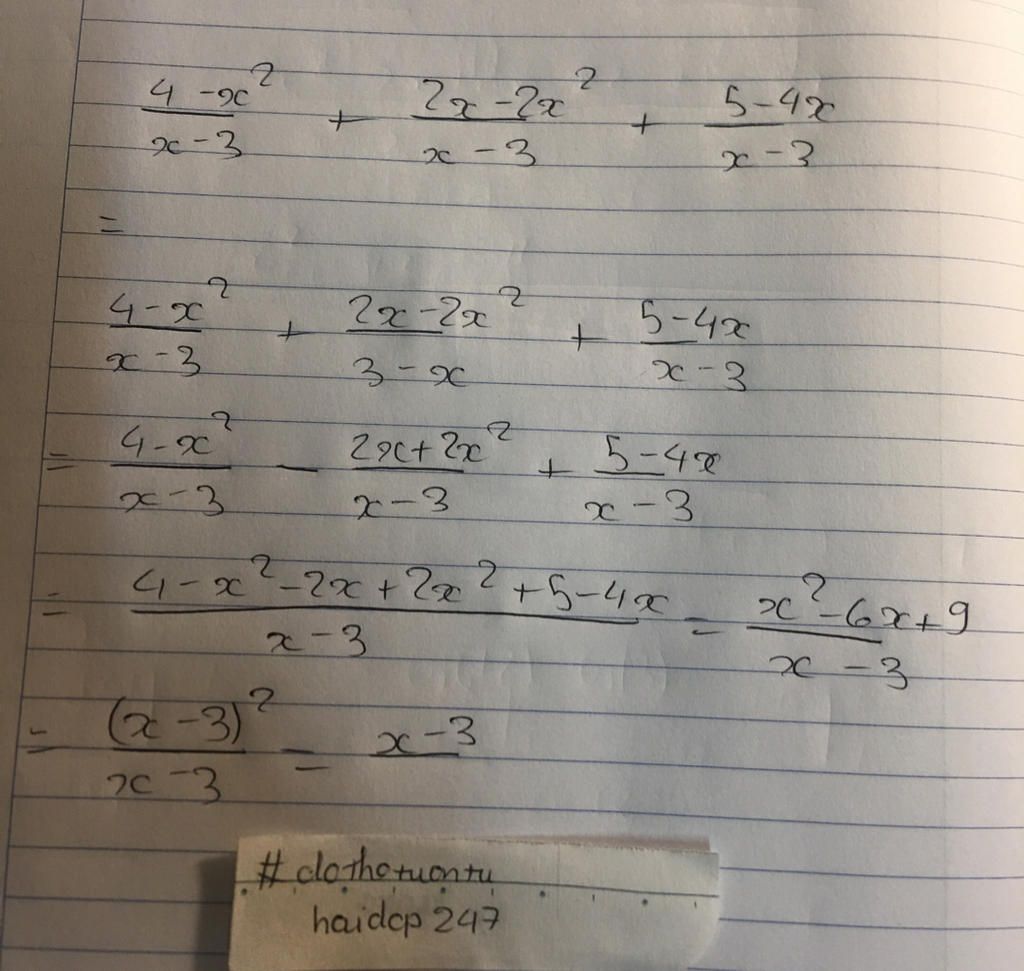 4 - x² / x - 3 + 2x - 2x² / x - 3 + 5 - 4x / x - 3
=
4 - x² / x - 3 + 2x - 2x² / 3 - x + 5 - 4x / x - 3
= 4 - x² / x - 3 - 2x + 2x² / x - 3 + 5 - 4x / x - 3
= 4 - x² - 2x + 2x² + 5 - 4x / x - 3 = x² - 6x + 9 / x - 3
= (x - 3)² / x - 3 = x - 3
#clothotuontu
haidcp247